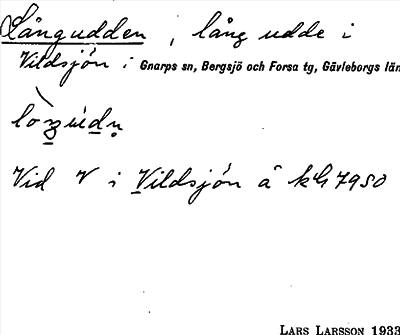 Långudden, lång udde i
Vildsjön i Gnarps sn, Bergsjö och Forsa tg, Gävleborgs län
Vid V i Vildsjön å kbl 7950
LARS LARSSON 1933